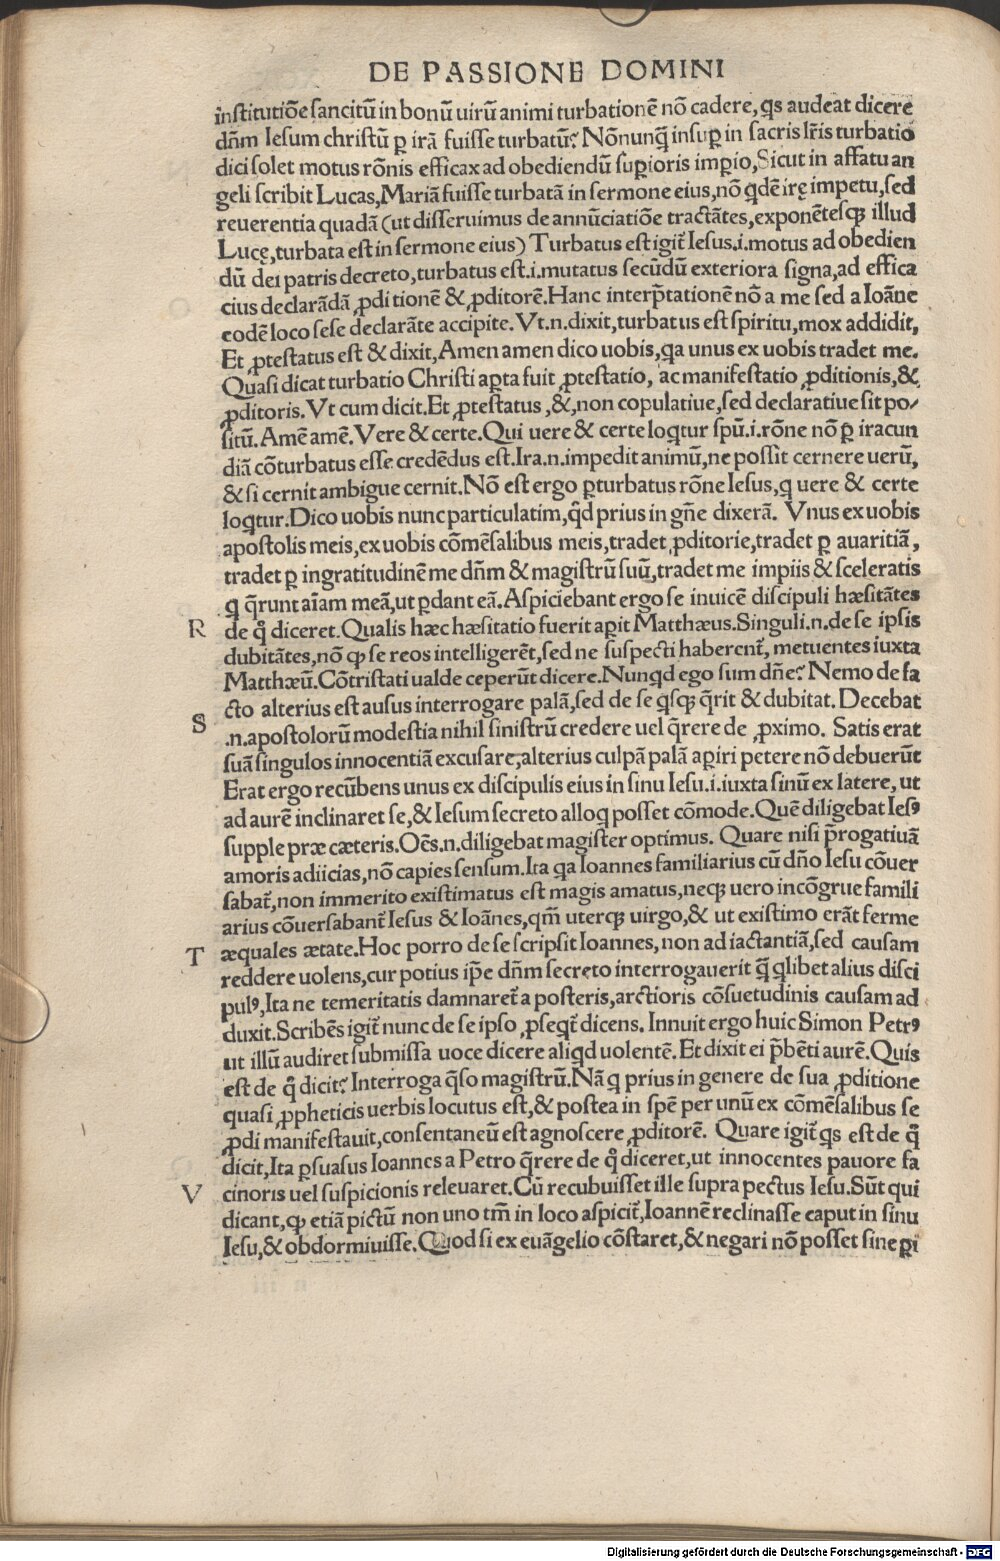 DE PASSIONE DOMINI
institutiõe sancitũ in bonũ uirũ animi turbationẽ nõ cadere, qs audeat dicere
dñm Iesum christũ ꝑ irã fuisse turbatũ? Nõnunq̃ insuꝑ in sacris lr̃is turbatio
dici solet motus rõnis efficax ad obediendũ suꝑioris imꝑio, Sicut in affatu an
geli scribit Lucas, Mariã fuisse turbatã in sermone eius, nõ qdẽ irę impetu, sed
reuerentia quadã (ut disseruimus de annũciatiõe tractãtes, exponẽtesqꝫ illud
Lucę, turbata est in sermone eius) Turbatus est igit̃ Iesus .i. motus ad obedien
dũ dei patris decreto, turbatus est .i. mutatus secũdũ exteriora signa, ad effica
cius declarãdã ꝓditionẽ & ꝓditorẽ. Hanc interp̃tationẽ nõ a me sed a Ioãne
eodẽ loco sese declarãte accipite. Vt .n. dixit, turbatus est spiritu, mox addidit,
Et ꝓtestatus est & dixit, Amen amen dico uobis, qa unus ex uobis tradet me.
Quasi dicat turbatio Christi aꝑta fuit ꝓtestatio, ac manifestatio ꝓditionis, &
ꝓditoris. Vt cum dicit. Et ꝓtestatus, &, non copulatiue, sed declaratiue sit po/
sitũ. Amẽ amẽ. Vere & certe. Qui uere & certe loqtur spũ .i. rõne nõ ꝑ iracun
diã cõturbatus esse credẽdus est. Ira .n. impedit animũ, ne possit cernere uerũ,
& si cernit ambigue cernit. Nõ est ergo ꝑturbatus rõne Iesus, q uere & certe
loqtur. Dico uobis nunc particulatim, qd̃ prius in gñe dixerã. Vnus ex uobis
apostolis meis, ex uobis cõmẽsalibus meis, tradet ꝓditorie, tradet ꝑ auaritiã,
tradet ꝑ ingratitudinẽ me dñm & magistrũ suũ, tradet me impiis & sceleratis
q q̃runt aĩam meã, ut ꝑdant eã. Aspiciebant ergo se inuicẽ discipuli hæsitãtes
R de q̃ diceret. Qualis hæc hæsitatio fuerit aꝑit Matthæus. Singuli .n. de se ipsis
dubitãtes, nõ ꝙ se reos intelligerẽt, sed ne suspecti haberent̃, metuentes iuxta
Matthæũ. Cõtristati ualde ceperũt dicere. Nunqd ego sum dñe? Nemo de fa
cto alterius est ausus interrogare palã, sed de se qsqꝫ q̃rit & dubitat. Decebat
S .n. apostolorũ modestia nihil sinistrũ credere uel q̃rere de ꝓximo. Satis erat
suã singulos innocentiã excusare, alterius culpã palã aꝑiri petere nõ debuerũt
Erat ergo recũbens unus ex discipulis eius in sinu Iesu .i. iuxta sinũ ex latere, ut
ad aurẽ inclinaret se, & Iesum secreto alloq posset cõmode. Quẽ diligebat Iesꝰ
supple præ cæteris. Oẽs .n. diligebat magister optimus. Quare nisi p̃rogatiuã
amoris adiicias, nõ capies sensum. Ita qa Ioannes familiarius cũ dño Iesu cõuer
sabat̃, non immerito existimatus est magis amatus, neqꝫ uero incõgrue famili
arius cõuersabant̃ Iesus & Ioãnes, qm̃ uterqꝫ uirgo, & ut existimo erãt ferme
T æquales ætate. Hoc porro de se scripsit Ioannes, non ad iactantiã, sed causam
reddere uolens, cur potius ip̃e dñm secreto interrogauerit q̃ qlibet alius disci
pulꝰ, Ita ne temeritatis damnaret̃ a posteris, arctioris cõsuetudinis causam ad
duxit. Scribẽs igit̃ nunc de se ipso ꝓseqt̃ dicens. Innuit ergo huic Simon Petrꝰ
ut illũ audiret submissa uoce dicere aliqd uolentẽ. Et dixit ei p̃bẽti aurẽ. Quis
est de q̃ dicit? Interroga q̃so magistrũ. Nã q prius in genere de sua ꝓditione
quasi ꝓpheticis uerbis locutus est, & postea in spẽ per unũ ex cõmẽsalibus se
ꝓdi manifestauit, consentaneũ est agnoscere ꝓditorẽ. Quare igit̃ qs est de q̃
dicit, Ita ꝑsuasus Ioannes a Petro q̃rere de q̃ diceret, ut innocentes pauore fa
V cinoris uel suspicionis releuaret. Cũ recubuisset ille supra pectus Iesu. Sũt qui
dicant, ꝙ etiã pictũ non uno tm̃ in loco aspicit̃, Ioannẽ reclinasse caput in sinu
Iesu, & obdormiuisse. Quod si ex euãgelio cõstaret, & negari nõ posset sine ꝑi
Digitalisierung gefördert durch die Deutsche Forschungsgemeinschaft - DFG